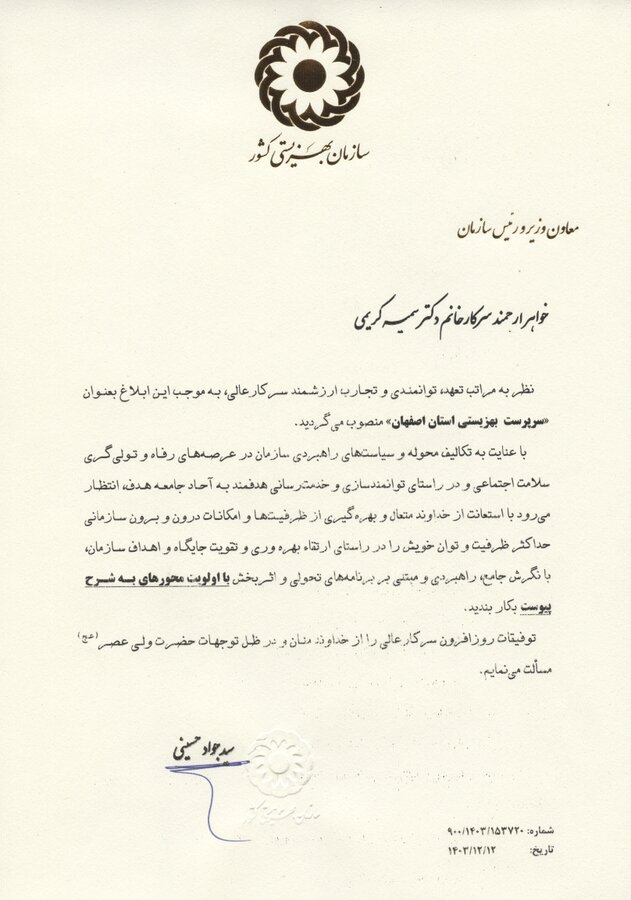 سازمان بهزیستی کشور
معاون وزیر و رئیس سازمان
خواهر ارجمند سرکار خانم دکتر سمیه کریمی
نظر به مراتب تعهد، توانمندی و تجارب ارزشمند سرکارعالی، به موجب این ابلاغ بعنوان
«سرپرست بهزیستی استان اصفهان» منصوب می‌گردید.
با عنایت به تکالیف محوله و سیاست‌های راهبردی سازمان در عرصه‌های رفاه و تولی‌گری
سلامت اجتماعی و در راستای توانمندسازی و خدمت‌رسانی هدفمند به آحاد جامعه هدف، انتظار
می‌رود با استعانت از خداوند متعال و بهره‌گیری از ظرفیت‌ها و امکانات درون و برون سازمانی
حداکثر ظرفیت و توان خویش را در راستای ارتقاء بهره وری و تقویت جایگاه و اهداف سازمان،
با نگرش جامع، راهبردی و مبتنی بر برنامه‌های تحولی و اثربخش با اولویت محورهای به شرح
پیوست بکار بندید.
توفیقات روزافزون سرکارعالی را از خداوند منان و در ظل توجهات حضرت ولی عصر (عج)
مسألت می‌نمایم.
سید جواد حسینی
شماره: ۹۰۰/۱۴۰۳/۱۵۳۷۲۰
تاریخ: ۱۴۰۳/۱۲/۱۲